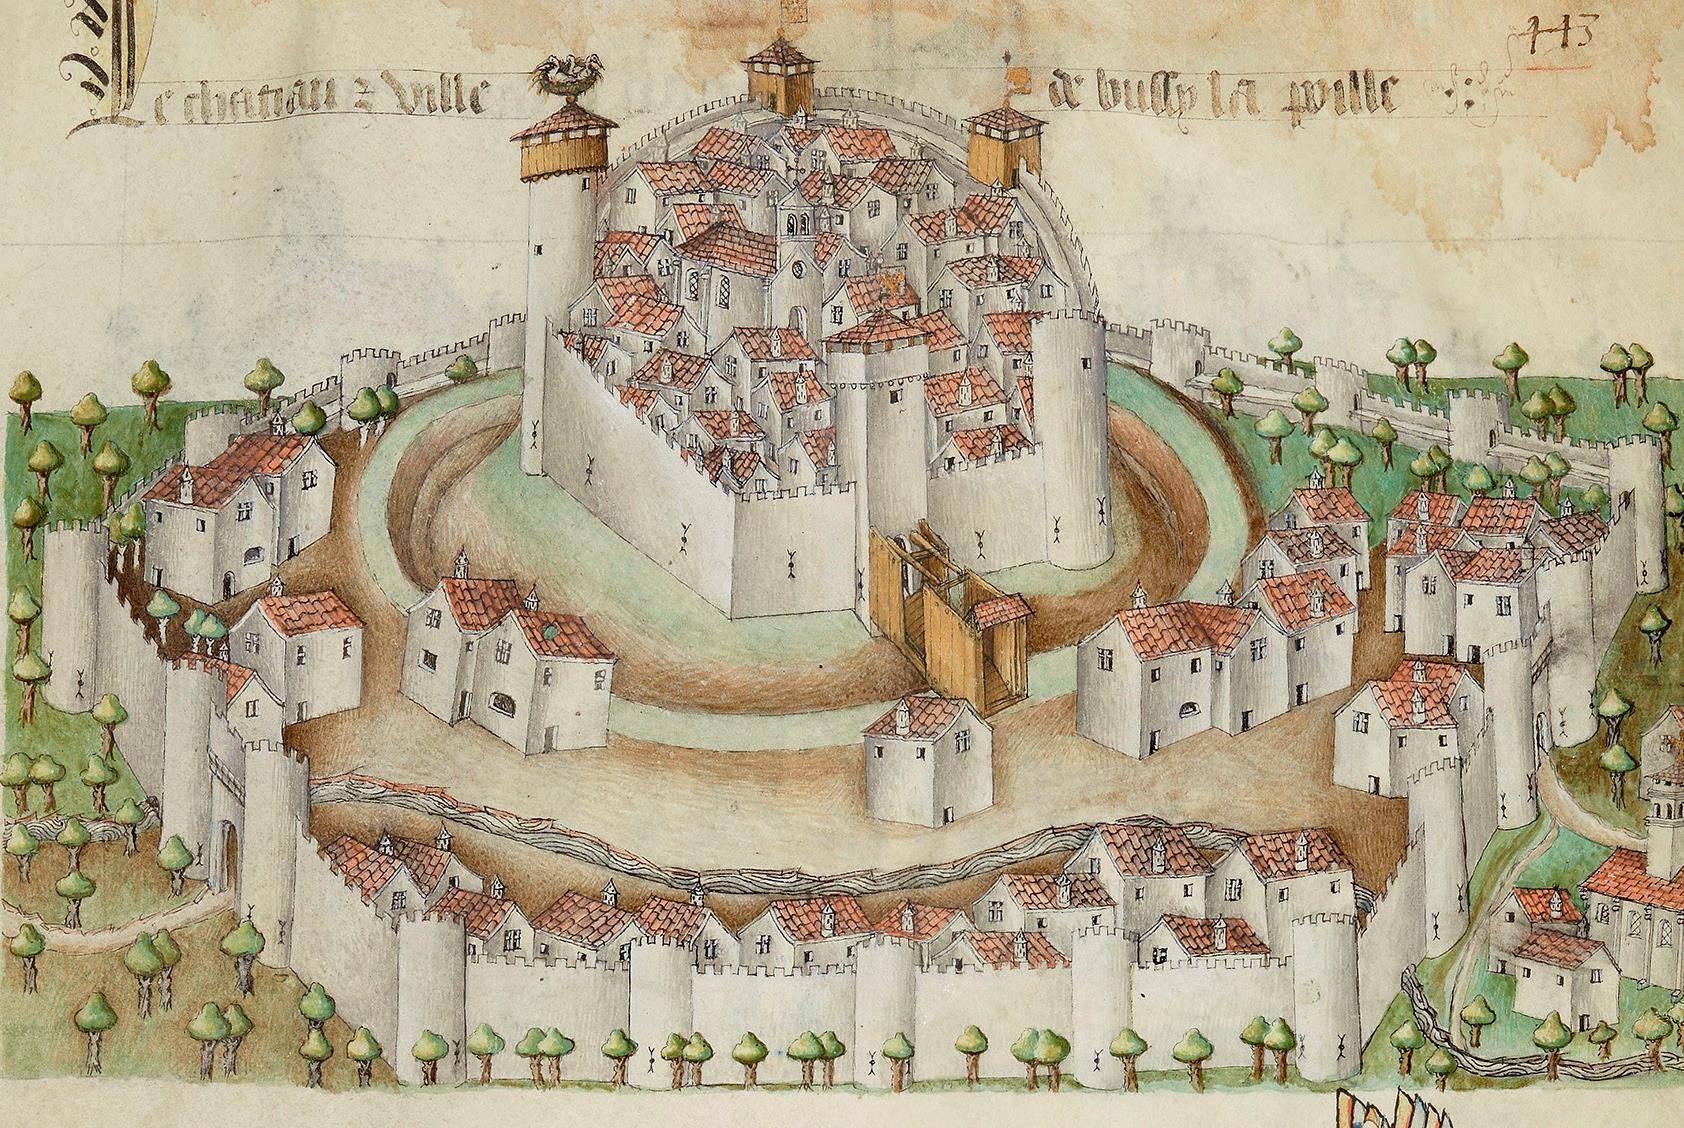 443
Le chastau & Ville de bussy la poille